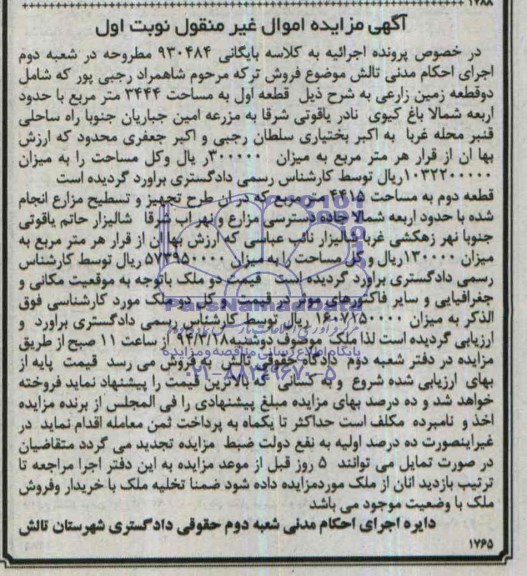 ۱۷۸۸
آگهی مزایده اموال غیر منقول نوبت اول
در خصوص پرونده اجرائیه به کلاسه بایگانی ۹۳۰۴۸۴ مطروحه در شعبه دوم
اجرای احکام مدنی تالش موضوع فروش ترکه مرحوم شاهمراد رجبی پور که شامل
دوقطعه زمین زارعی به شرح ذیل قطعه اول به مساحت ۳۴۴۴ متر مربع با حدود
اربعه شمالا باغ کیوی نادر یاقوتی شرقا به مزرعه امین جباریان جنوبا راه ساحلی
قنبر محله غربا به اکبر بختیاری سلطان رجبی و اکبر جعفری محدود که ارزش
بها ان از قرار هر متر مربع به میزان ۳۰۰۰۰۰ر یال وکل مساحت را به میزان
۱۰۳۲۲۰۰۰۰۰ریال توسط کارشناس رسمی دادگستری براورد گردیده است
قطعه دوم به مساحت ۴۴۱۵ متر مربع که در ان طرح تجهیز و تسطیح مزارع انجام
شده با حدود اربعه شمالا جاده دسترسی مزارع و نهر اب شرقا شالیزار حاتم یاقوتی
جنوبا نهر زهکشی غربا شالیزار نائب عباسی که ارزش بها ان از قرار هر متر مربع به
میزان ۱۳۰۰۰۰ریال و کل مساحت را به میزان ۵۷۳۹۵۰۰۰۰ ریال توسط کارشناس
رسمی دادگستری براورد گردیده است قیمت دو ملک باتوجه به موقعیت مکانی و
جغرافیایی و سایر فاکتورهای موثر در قیمت و کل دو ملک مورد کارشناسی فوق
الذکر به میزان ریال توسط کارشناس رسمی دادگستری براورد و
ارزیابی گردیده است لذا ملک موصوف دوشنبه ۹۴/۳/۱۸ از ساعت ۱۱ صبح از طریق
مزایده در دفتر شعبه دوم دادگاه حقوقی تالش به فروش می رسد قیمت پایه از
بهای ارزیابی شده شروع و به کسانی که بالاترین قیمت را پیشنهاد نماید فروخته
خواهد شد و ده درصد بهای مزایده مبلغ پیشنهادی را فی المجلس از برنده مزایده
اخذ و نامبرده مکلف است حداکثر تا یکماه به پرداخت ثمن معامله اقدام نماید در
غیراینصورت ده درصد اولیه به نفع دولت ضبط مزایده تجدید می گردد متقاضیان
در صورت تمایل می توانند ۵ روز قبل از موعد مزایده به این دفتر اجرا مراجعه تا
ترتیب بازدید انان از ملک موردمزایده داده شود ضمنا تخلیه ملک با خریدار وفروش
ملک با وضعیت موجود می باشد
دایره اجرای احکام مدنی شعبه دوم حقوقی دادگستری شهرستان تالش
۱۷۶۵
ParsNamadData
پایگاه اطلاع رسانی مناقصه و مزایده
۰۲۱-۸۸۳۴۹۶۷۰-۵